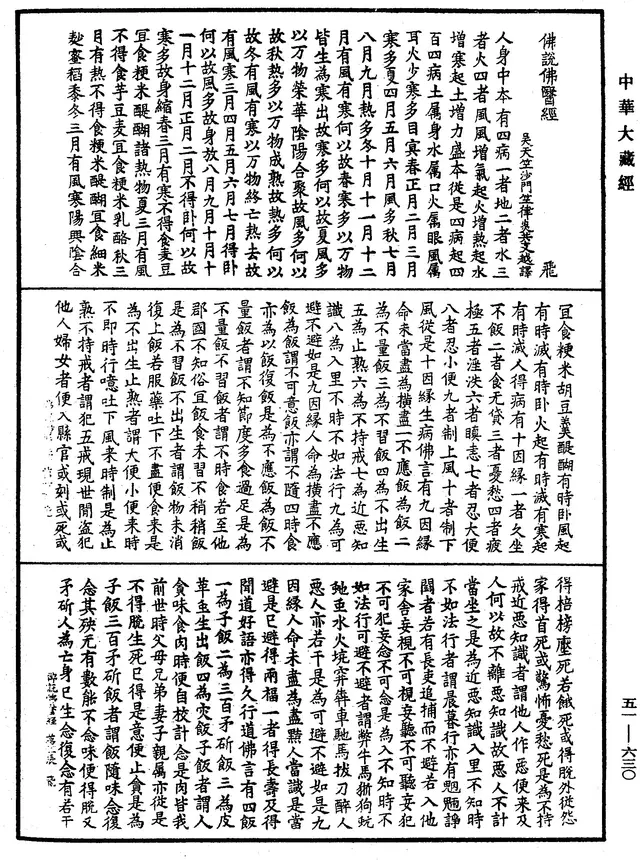 中華大藏經
佛說佛醫經
飛
吳天竺沙門竺律炎共支越譯
人身中本有四病一者地二者水三
者火四者風風增氣起火增熱起水
增寒起土增力盛本從是四病起四
百四病土属身水属口火属眼風属
耳火少寒多目冥春正月二月三月
寒多夏四月五月六月風多秋七月
八月九月熱多冬十月十一月十二
月有風有寒何以故春寒多以万物
皆生為寒出故寒多何以故夏風多
以万物榮華陰陽合聚故風多何以
故秋熱多以万物成熟故熱多何以
故冬有風有寒以万物終亡熱去故
有風寒三月四月五月六月七月得卧
何以故風多故身放八月九月十月十
一月十二月正月二月不得卧何以故
寒多故身縮春三月有寒不得食麦豆
冝食粳米醍醐諸熱物夏三月有風
不得食芋豆麦冝食粳米乳酪秋三
月有熱不得食粳米醍醐冝食細米
麨蜜稻黍冬三月有風寒陽興陰合
冝食粳米胡豆羹醍醐有時卧風起
有時滅有時卧火起有時滅有寒起
有時滅人得病有十因緣一者久坐
不飯二者食无貸三者憂愁四者疲
極五者淫泆六者瞋恚七者忍大便
八者忍小便九者制上風十者制下
風從是十因緣生病佛言有九因緣
命未當盡為橫盡一不應飯為飯二
為不量飯三為不習飯四為不出生
五為止熟六為不持戒七為近惡知
識八為入里不時不如法行九為可
避不避如是九因緣人命為橫盡不應
飯為飯謂不可意飯亦謂不隨四時食
亦為以飯復飯是為不應飯為飯不
量飯者謂不知節度多食過足是為
不量飯不習飯者謂不時食若至他
郡國不知俗冝飯食未習不稍稍飯
是為不習飯不出生者謂飯物未消
復上飯若服藥吐下不盡便食來是
為不出生止熟者謂大便小便來時
不即時行噫吐下風來時制是為止
熟不持戒者謂犯五戒現世間盗犯
他人婦女者便入縣官或刻或死或
得棓榜壓死若餓死或得脱外從怨
家得首死或驚怖憂愁死是為不持
戒近惡知識者謂他人作惡便来及
人何以故不離惡知識故惡人不計
當坐之是為近惡知識入里不知時
不如法行者謂晨暮行亦有魍魎諍
鬪者若有長吏追捕而不避若入他
家舍妄視不可視妄聽不可聽妄犯
不可犯妄念不可念是為入不知時不
如法行可避不避者謂弊牛馬猘狗蚖
虵虫水火坑穽犇車馳馬拔刀醉人
惡人亦若干是為可避不避如是九
因緣人命未盡為盡黠人當識是當
避是已避得兩福一者得長壽及得
聞道好語亦得久行道佛言有四飯
一為子飯二為三百矛斫飯三為皮
革虫生出飯四為灾飯子飯者謂人
貪味食肉時便自校計念是肉皆我
前世時父母兄弟妻子親属亦從是
不得脱生死已得是意便止貪是為
子飯三百矛斫飯者謂飯隨味念復
念其殃无有數能不念味便得脱又
矛斫人為亡身已生念復念有若干
五一—六三〇